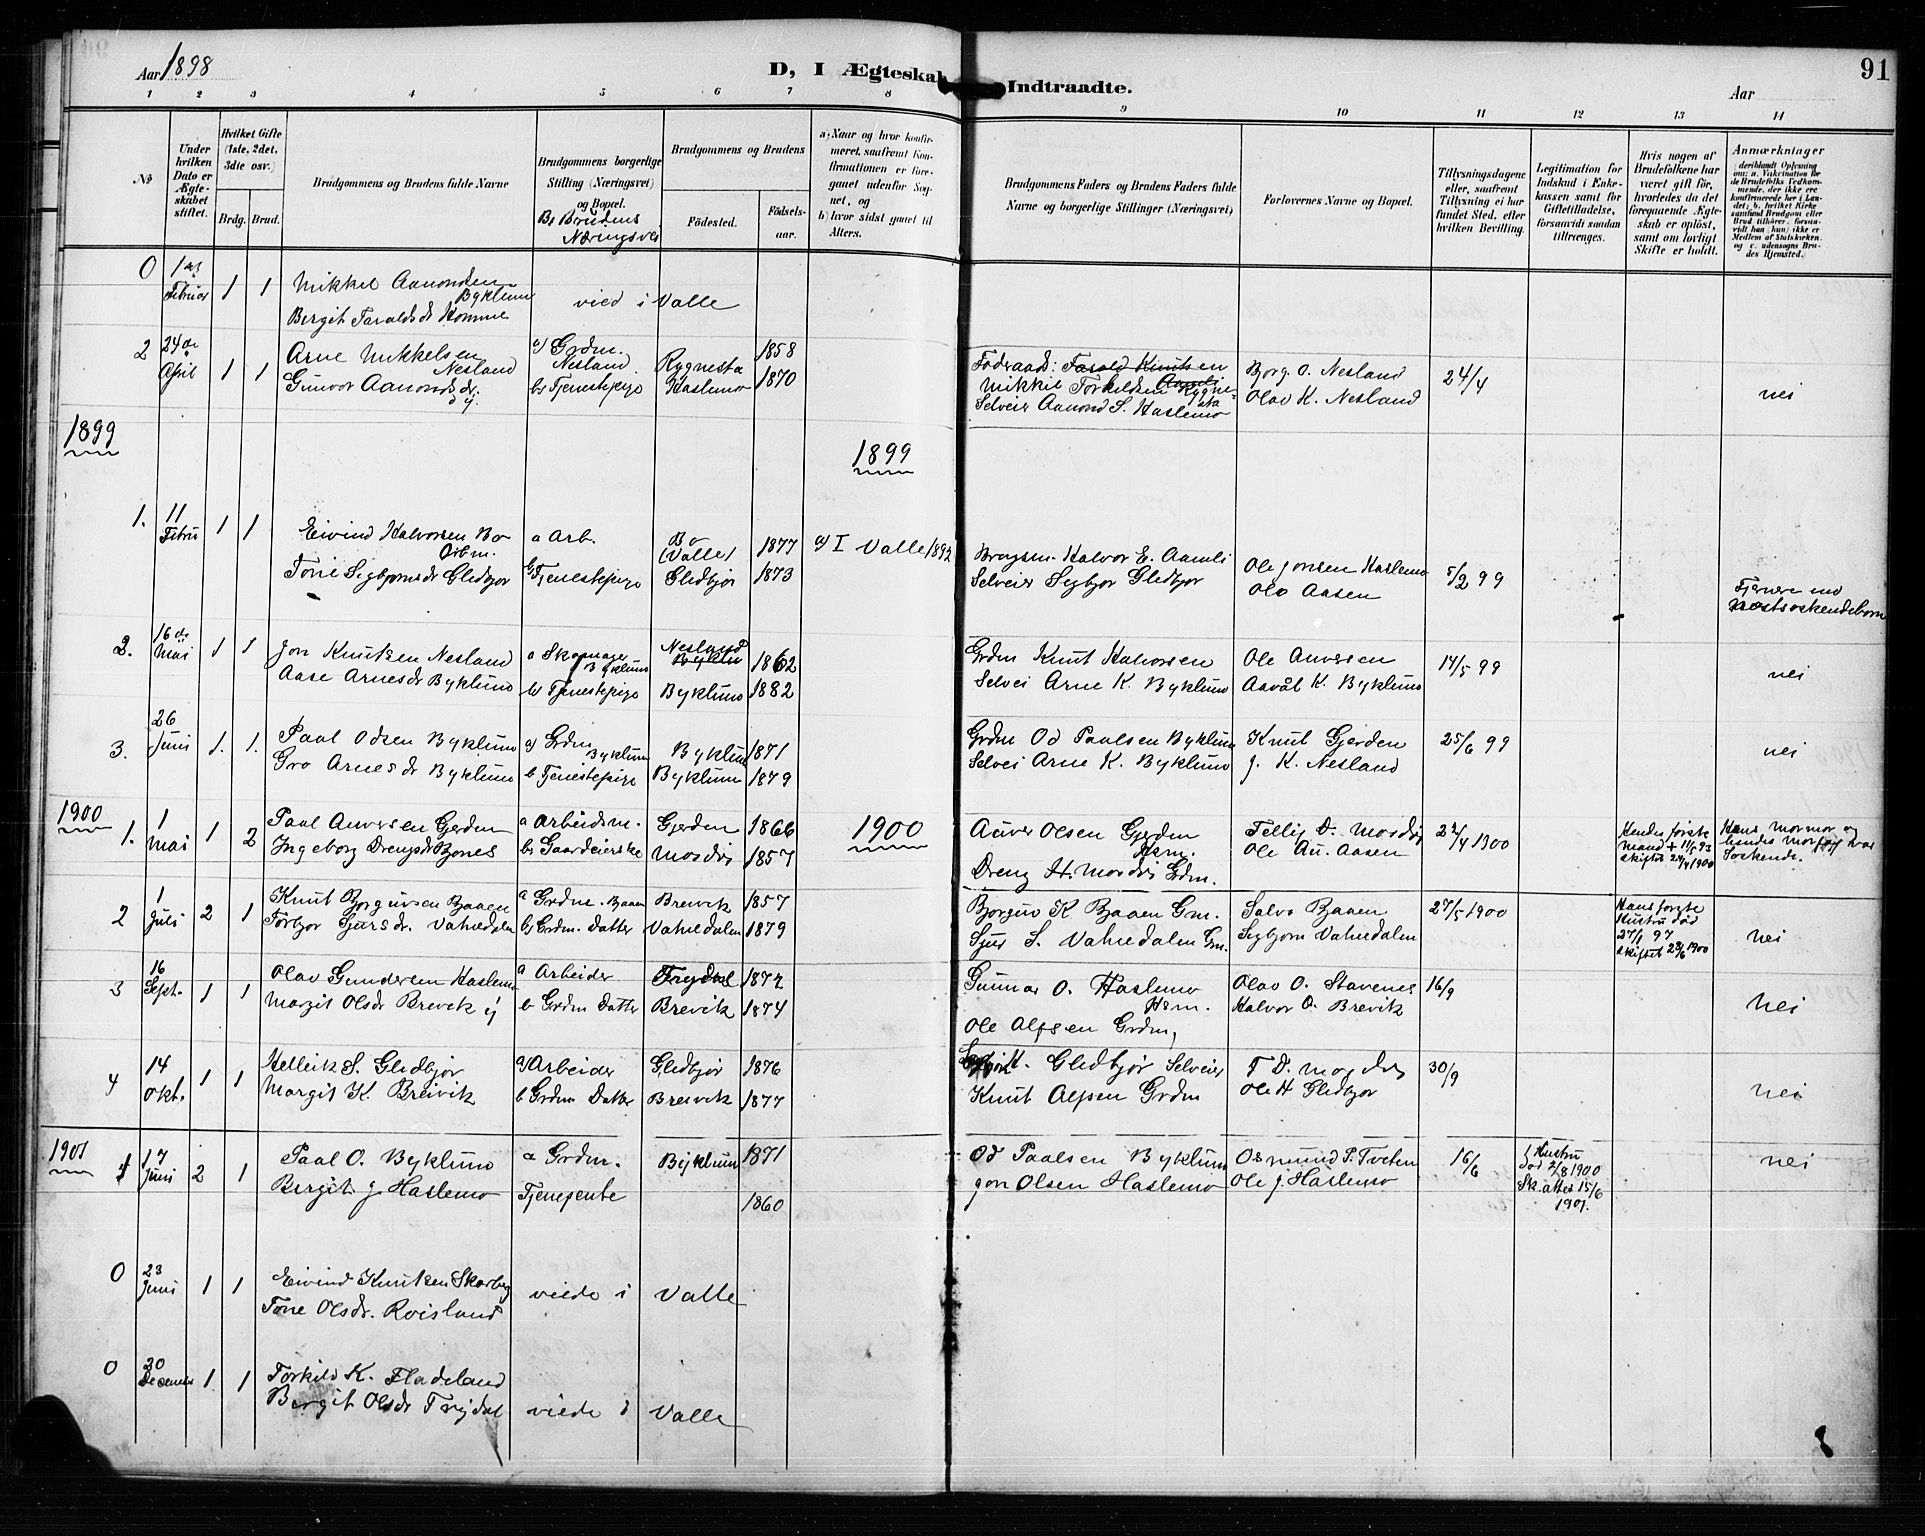 Aar 1898
D, I Ægteskab Indtraadte.
Aar
91
1 2 3 4 5 6 7 8 9 10 11 12 13 14
No
Under hvilken Dato er Ægteskabet stiftet.
Hvilket Gifte (1ste, 2det, 3die osv.)
Brdg. Brud.
Brudgommens og Brudens fulde Navne
Brudgommens borgerlige Stilling (Næringsvei) og Bopæl.
B: Brudens Næringsvei
Brudgommens og Brudens
Fødested. Fødsels-aar.
a) Naar og hvor konfirmeret, saafremt Konfirmationen er foregaaet udenfor Sognet, og
b) hvor sidst gaaet til Alters.
Brudgommens Faders og Brudens Faders fulde Navne og borgerlige Stillinger (Næringsvei)
Forlovernes Navne og Bopæl.
Tillysningsdagene eller, saafremt Tillysning ei har fundet Sted, efter hvilken Bevilling.
Legitimation for Indskud i Enkekassen samt for Giftetilladelse, forsaavidt saadan tiltrænges.
Hvis nogen af Brudefolkene har været gift før, hvorledes da det foregaaende Ægteskab er opløst, samt om lovligt Skifte er holdt.
Anmærkninger
0 1ste Februar 1 1 Mikkel Aanonsen Byklum
Bergit Taraldsdr Homme
vied i Valle
2 24de April 1 1 Arne Mikkelsen Nesland
Gunvor Aanondsdr. ij.
a) Grdm. Nesland
b) Tjenestepige
Rygnesta 1858
Haslemo 1870
Foderaad: Tarald Knutsen Aamli
Mikkel Torkildsen Rygnesta
Selveier Aanond S. Haslemo
Bjorg. O. Nesland
Olav K. Nesland
24/4
nei
1899
1899
1. 11 Febru 1 1 Eivind Halvorsen Bø
Tone Sigbjørnsdr Gledbjør
a Arb.
b Tjenestepige
Bø (Valle) 1877
Gledbjør 1873
a) I Valle 1892
Halvor E. Aamli
Selveier Sigbjør Gledbjør
Ole Jonsen Haslemo
Ole Aasen
5/2 99
Fjernere end næstsøskendebørn
2. 16de Mai 1 1 Jon Knutsen Nesland
Aase Arnesdr Byklum
a Skomager Byklum
b) Tjenestepige
Nesland Byklu 1862
Byklum 1882
Grdm Knut Halvorsen
Selvei Arne K. Byklum
Ole Auversen
Aavål K. Byklum
14/5 99
nei
3. 26 Juni 1. 1. Paal Odsen Byklum
Gro Arnesdr Byklum
a) Grdm Byklum
b Tjenestepige
Byklum 1871
Byklum 1879
Grdm Od Paalsen Byklum
Selvei Arne K. Byklum
Knut Gjerden
J. K. Nesland
25/6 99
nei
1900
1900
1. 1 Mai 1 2 Paal Auversen Gjerden
Ingeborg Drengsdr Bjones
a Arbeidsm.
b) Gaardeierske
Gjerden 1866
Mosdøl 1857
Auver Olsen Gjerden Hsm.
Dreng H. Mosdøl Grdm.
Tellej D. Mosdøl
Ole Au. Aasen
22/4 1900
Hendes første mand + 11/5 93
skiftet 24/4 1900
Hans mormor og hendes morfar var Søskende.
2 1 Juli 2 1 Knut Bjørguvsen Bjaaen
Torbjør Sjursdr. Vatnedalen
a Grdm. Bjaaen
b) Grdm. Datter
Breivik 1857
Vatnedalen 1879
Bjørguv K Bjaaen Gm.
Sjur S. Vatnedalen Gm.
Salve Bjaaen
Sigbjørn Vatnedalen
27/5 1900
Hans første Hustru død 27/1 97
skiftet 28/6 1900
nei
3 16 Sept. 1 1 Olav Gundersen Haslemo
Margit Olsdr Breivik ij
a Arbeider
b Grdm Datter
Trydal 1872
Breivik 1874
Gunnar O. Haslemo Hsm.
Ole Alfsen Grdm,
Olav O. Stavenes
Halvor O. Brevik
16/9
nei
4 14 Okt. 1 1 Helleik S. Gledbjør
Margit K. Breivik
a) Arbeider
b Grdm Datter
Gledbjør 1876
Breivik 1877
H. Gledbjør Selveier
Knut Alfsen Grdm
T D. Mosdøl
Ole H Gledbjør
30/9
nei
1901
1 17 Juni 2 1 Paal O. Byklum
Bergit J. Haslemo
a Grdm.
Tjenejente
Byklum 1871
1860
Od Paalsen Byklum
Jon Olsen Haslemo
Osmund P. Tveten
Ole J. Haslemo
16/6
1 Hustru
død 2/8 1900
Sk.attest 15/6 1901.
nei
0 23 Juni 1 1 Eivind Knutsen Skarberg
Tone Olsdr. Roisland
viede i Valle
0 20 December 1 1 Torkild K. Fladeland
Bergit Olsdr Trydal
viede i Valle